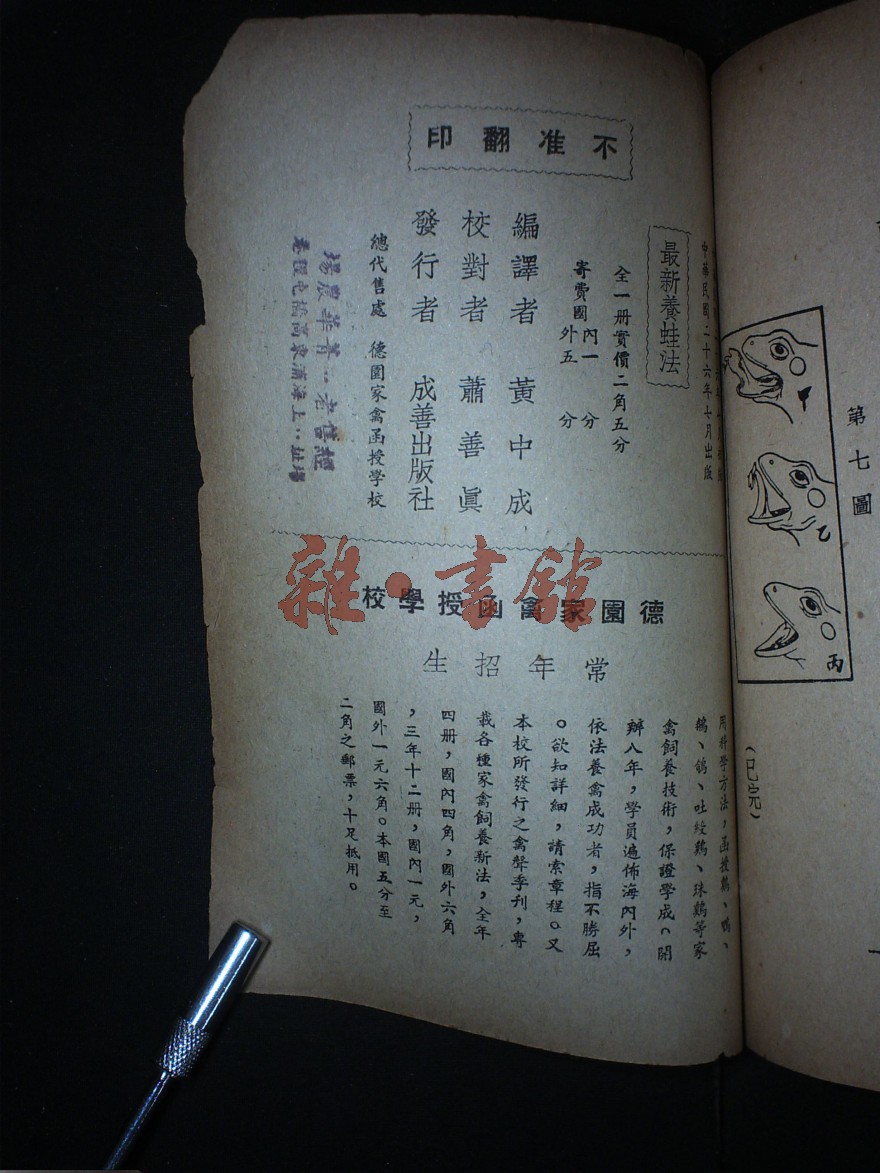 第七圖
乙
丙
(已完)
不准翻印
中華民國二十六年七月出版
最新養蛙法
全一册實價二角五分
寄費國內一分
外五分
編譯者 黃中成
校對者 蕭善眞
發行者 成善出版社
總代售處 德園家禽函授學校
經售者:菁華農場
場址:上海浦東高橋屯
德園家禽函授學校
常年招生
用科學方法,函授鷄、鴨、
鵝、鴿、吐綬鷄、珠鷄等家
禽飼養技術,保證學成(開
辦八年,學員遍佈海內外,
依法養禽成功者,指不勝屈
。欲知詳細,請索章程。又
本校所發行之禽聲季刊,專
載各種家禽飼養新法,全年
四册,國內四角,國外六角
,三年十二册,國內一元,
國外一元六角。本國五分至
二角之郵票,十足抵用。
雜·書館